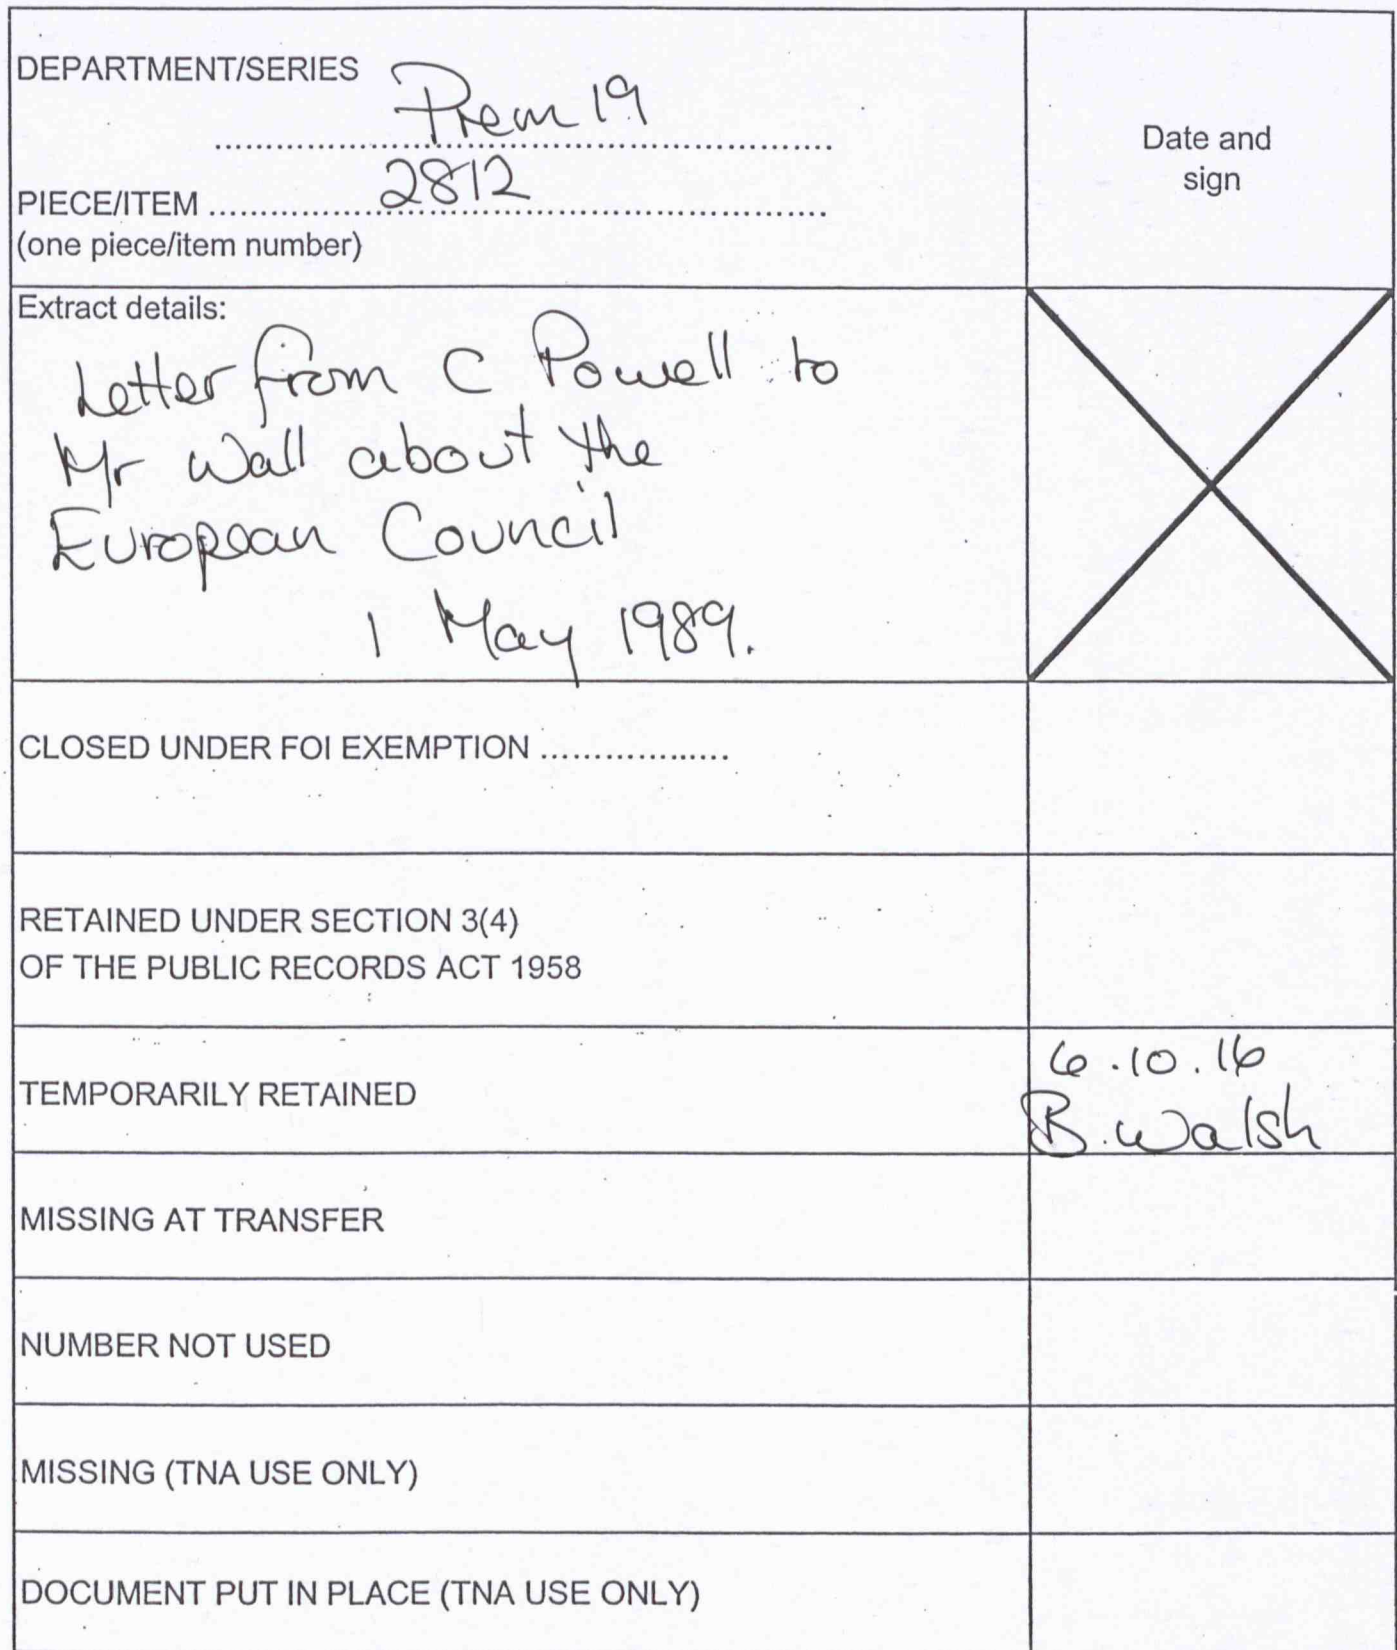 DEPARTMENT/SERIES
Prem 19
Date and
sign
2812
PIECE/ITEM ............................................................
(one piece/item number)
Extract details:
Letter from C Powell to
Mr Wall about the
European Council
1 May 1989.
CLOSED UNDER FOI EXEMPTION ...................
RETAINED UNDER SECTION 3(4)
OF THE PUBLIC RECORDS ACT 1958
TEMPORARILY RETAINED
6.10.16
B. Walsh
MISSING AT TRANSFER
NUMBER NOT USED
MISSING (TNA USE ONLY)
DOCUMENT PUT IN PLACE (TNA USE ONLY)